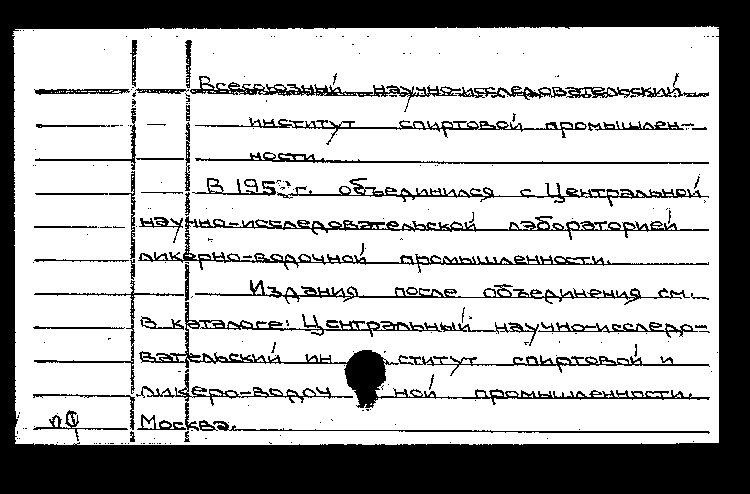 Всесоюзный научно-исследовательский
институт спиртовой промышлен-
ности.
В г. объединился с Центральной
научно-исследовательской лабораторией
ликерно-водочной промышленности.
Издания после объединения см.
в каталоге: Центральный научно-исследо-
вательский институт спиртовой и
ликеро-водочной промышленности.
Москва.